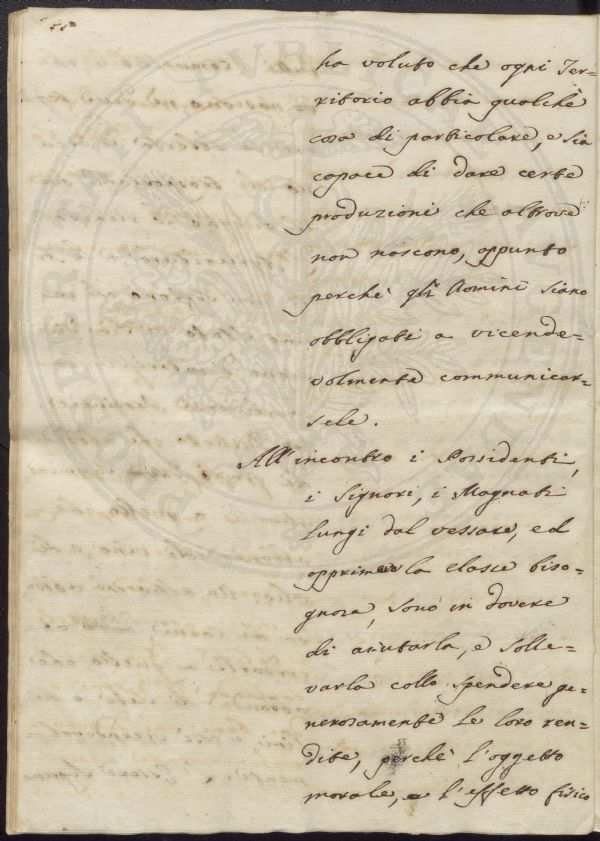 ha voluto che ogni Ter-
ritorio abbia qualchè
cosa di particolare, e sia
capace di dare certe
produzioni che altrove
non nascono, appunto
perchè gli Uomini siano
obbligati a vicende-
volmente communicar-
sele.
All'incontro i Possidenti,
i Signori, i Magnati
lungi dal vessare, ed
opprimere la classe biso-
gnosa, sono in dovere
di aiutarla, e solle-
varla collo spendere ge-
nerosamente le loro ren-
dite, perchè l'oggetto
morale, e l'effetto fisico